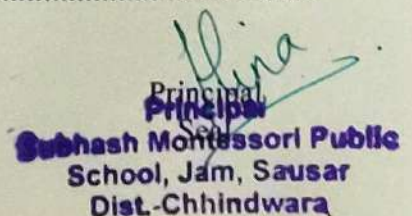 Hina
Principal
Principal
Seal
Subhash Montessori Public
School, Jam, Sausar
Dist.-Chhindwara